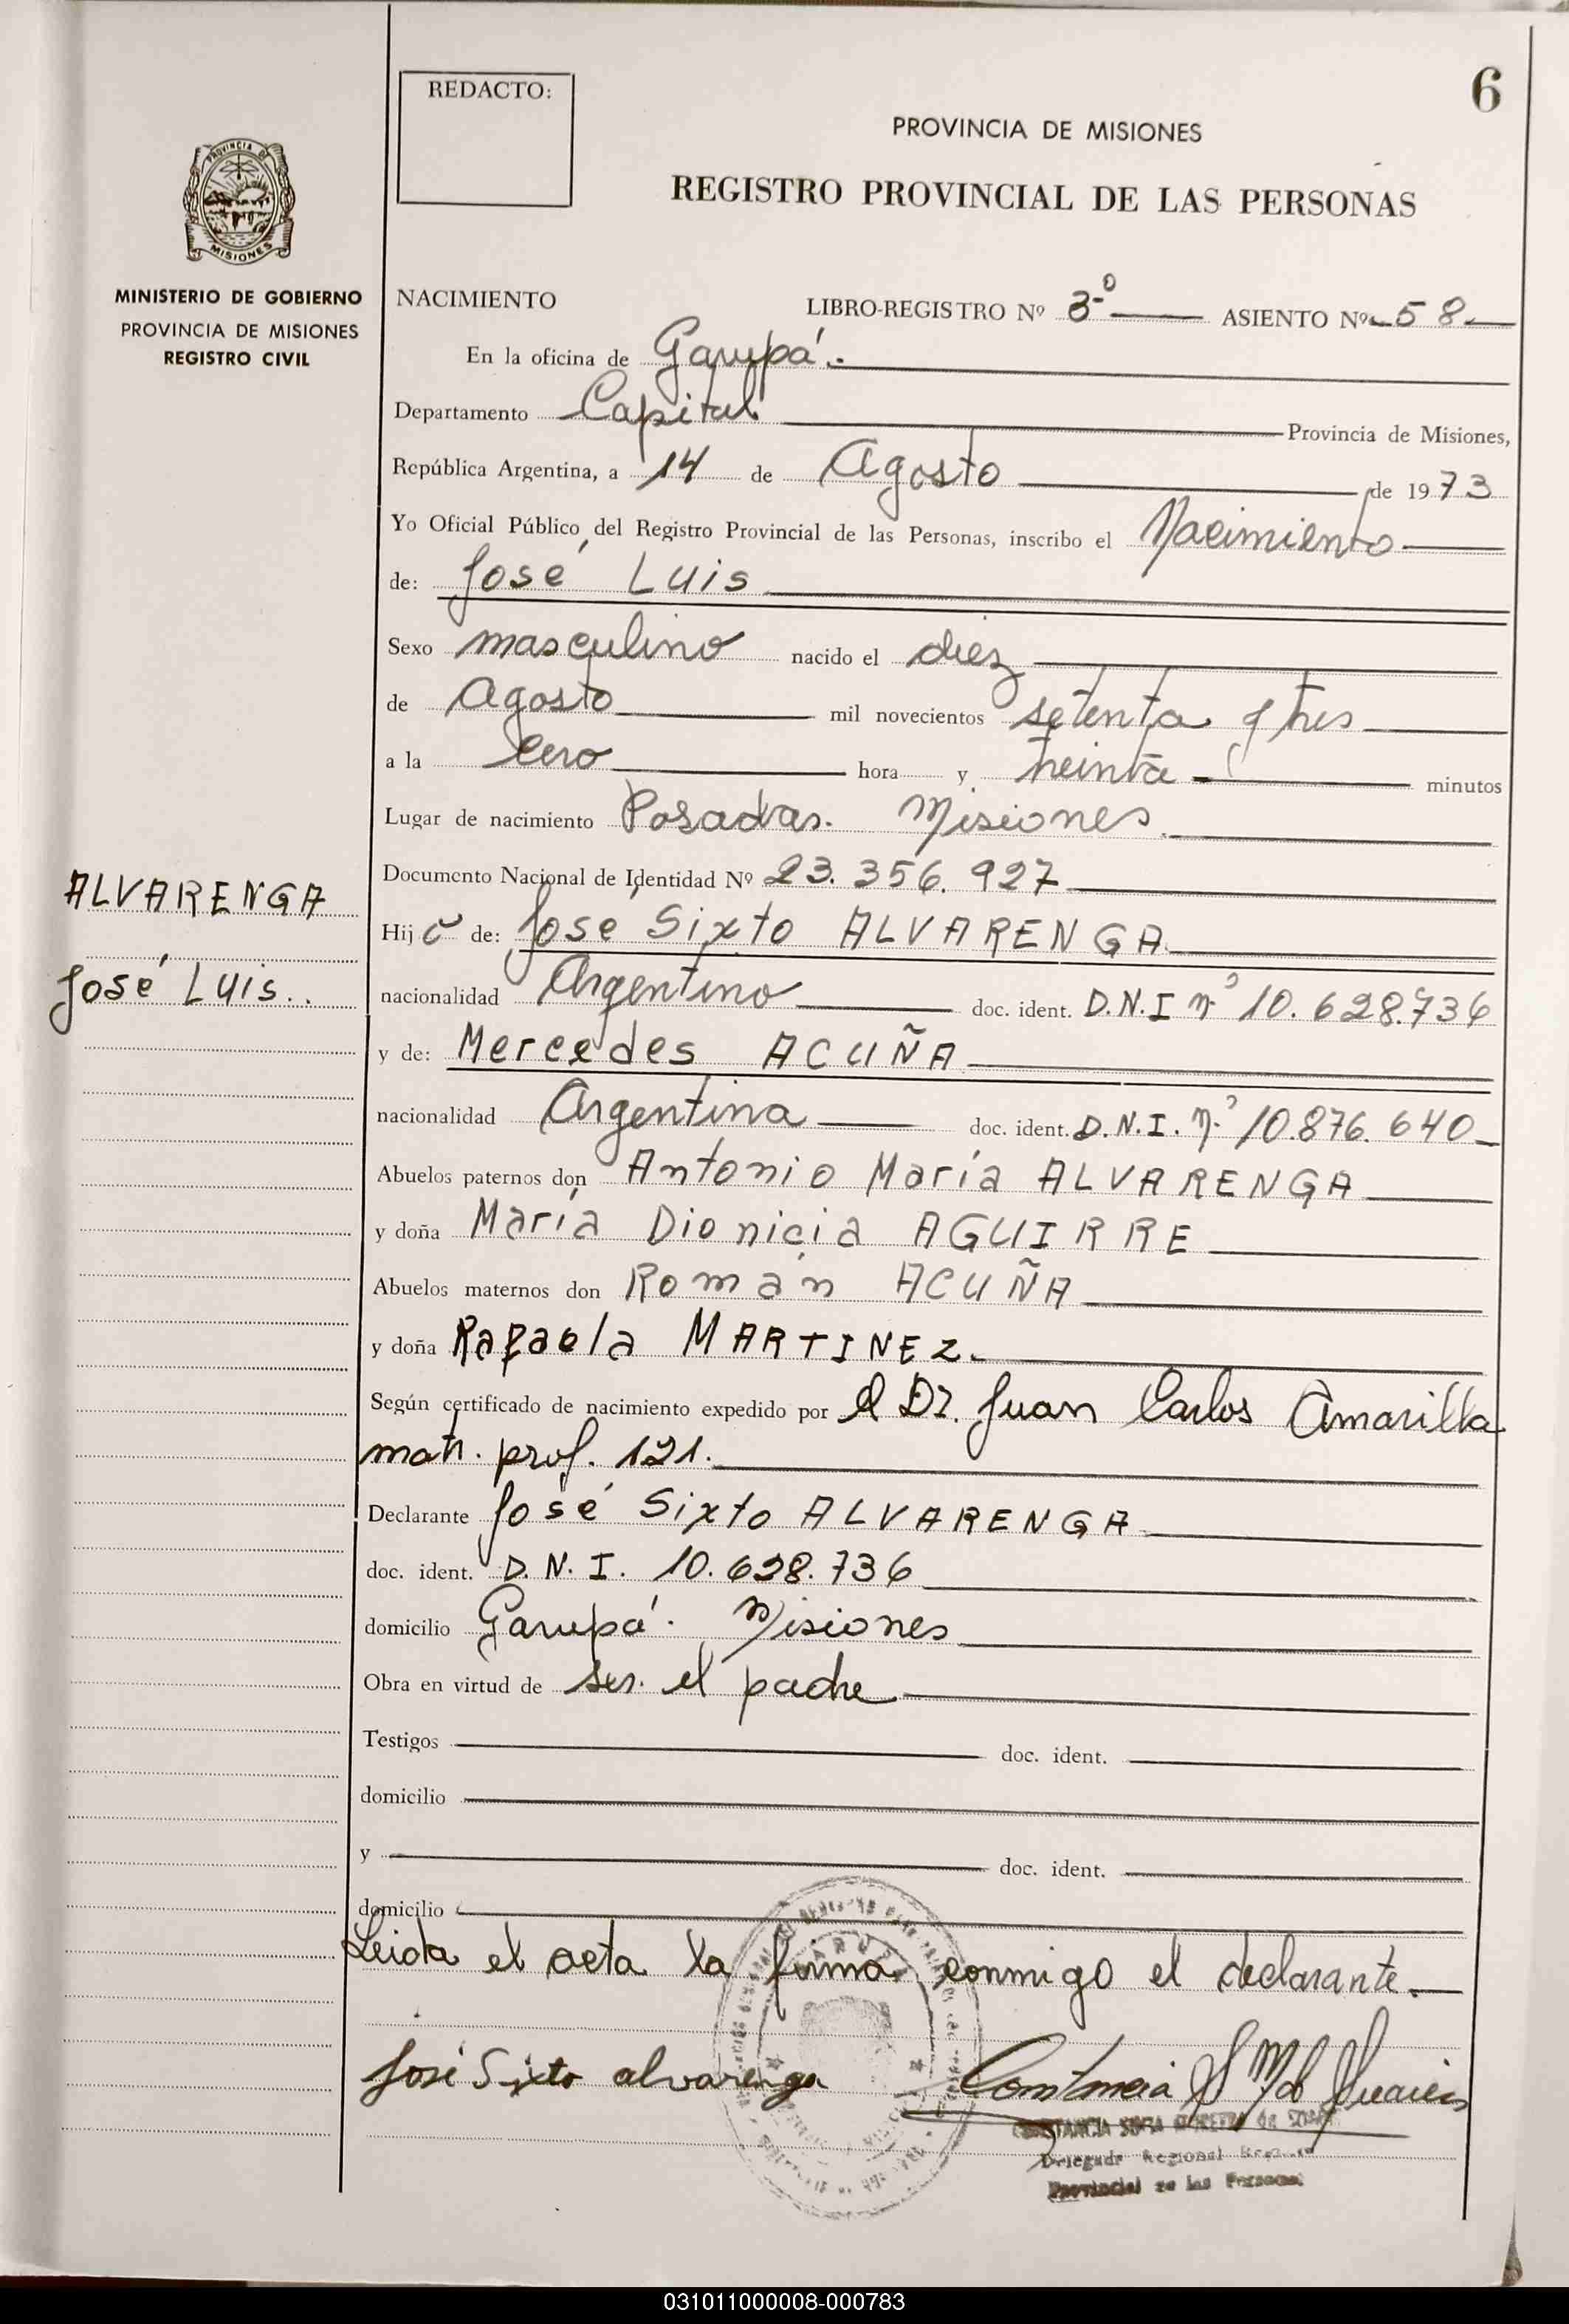 6
REDACTO:
PROVINCIA DE MISIONES
REGISTRO PROVINCIAL DE LAS PERSONAS
PROVINCIA DE
MISIONES
MINISTERIO DE GOBIERNO
PROVINCIA DE MISIONES
REGISTRO CIVIL
NACIMIENTO LIBRO-REGISTRO Nº 3-º ASIENTO Nº 58
En la oficina de Garupá.
Departamento Capital Provincia de Misiones,
República Argentina, a 14 de Agosto de 1973
Yo Oficial Público, del Registro Provincial de las Personas, inscribo el Nacimiento
de: José Luis
Sexo masculino nacido el diez
de Agosto mil novecientos setenta y tres
a la cero hora y treinta minutos
Lugar de nacimiento Posadas. Misiones.
Documento Nacional de Identidad Nº 23.356.927
ALVARENGA
José Luis..
Hijo de: José Sixto ALVARENGA
nacionalidad Argentino doc. ident. D.N.I nº 10.628.736
y de: Mercedes ACUÑA
nacionalidad Argentina doc. ident. D.N.I. nº 10.876.640
Abuelos paternos don Antonio María ALVARENGA
y doña María Dionicia AGUIRRE
Abuelos maternos don Román ACUÑA
y doña Rafaela MARTINEZ.
Según certificado de nacimiento expedido por el Dr. Juan Carlos Amarilla
matr. prof. 121.
Declarante José Sixto ALVARENGA
doc. ident. D.N.I. 10.628.736
domicilio Garupá. Misiones
Obra en virtud de ser el padre
Testigos doc. ident.
domicilio
y doc. ident.
domicilio
Leida el acta la firma conmigo el declarante.
José Sixto alvarenga
Delegada Regional
Provincial de las Personas
031011000008-000783